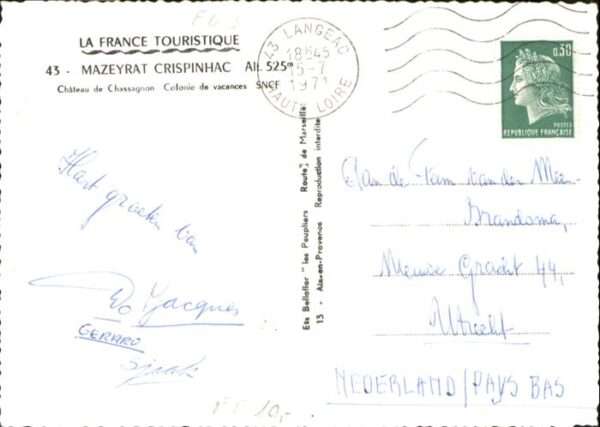 LA FRANCE TOURISTIQUE
43 - MAZEYRAT CRISPINHAC Alt. 525m
Château de Chassagnon Colonie de vacances SNCF
43 LANGEAC
18H45
15-7
1971
HAUTE LOIRE
0,30
POSTES
REPUBLIQUE FRANÇAISE
Hart. groeten van
Jacques
GERARD
Aan de Fam van der Meer
Brandsma,
Nieuwe Gracht 44,
Utrecht
NEDERLAND/PAYS BAS
Ets Bellaffer "les Peupliers Route" de Marseille
13 - Aix-en-Provence Reproduction interdite
FF 10,-